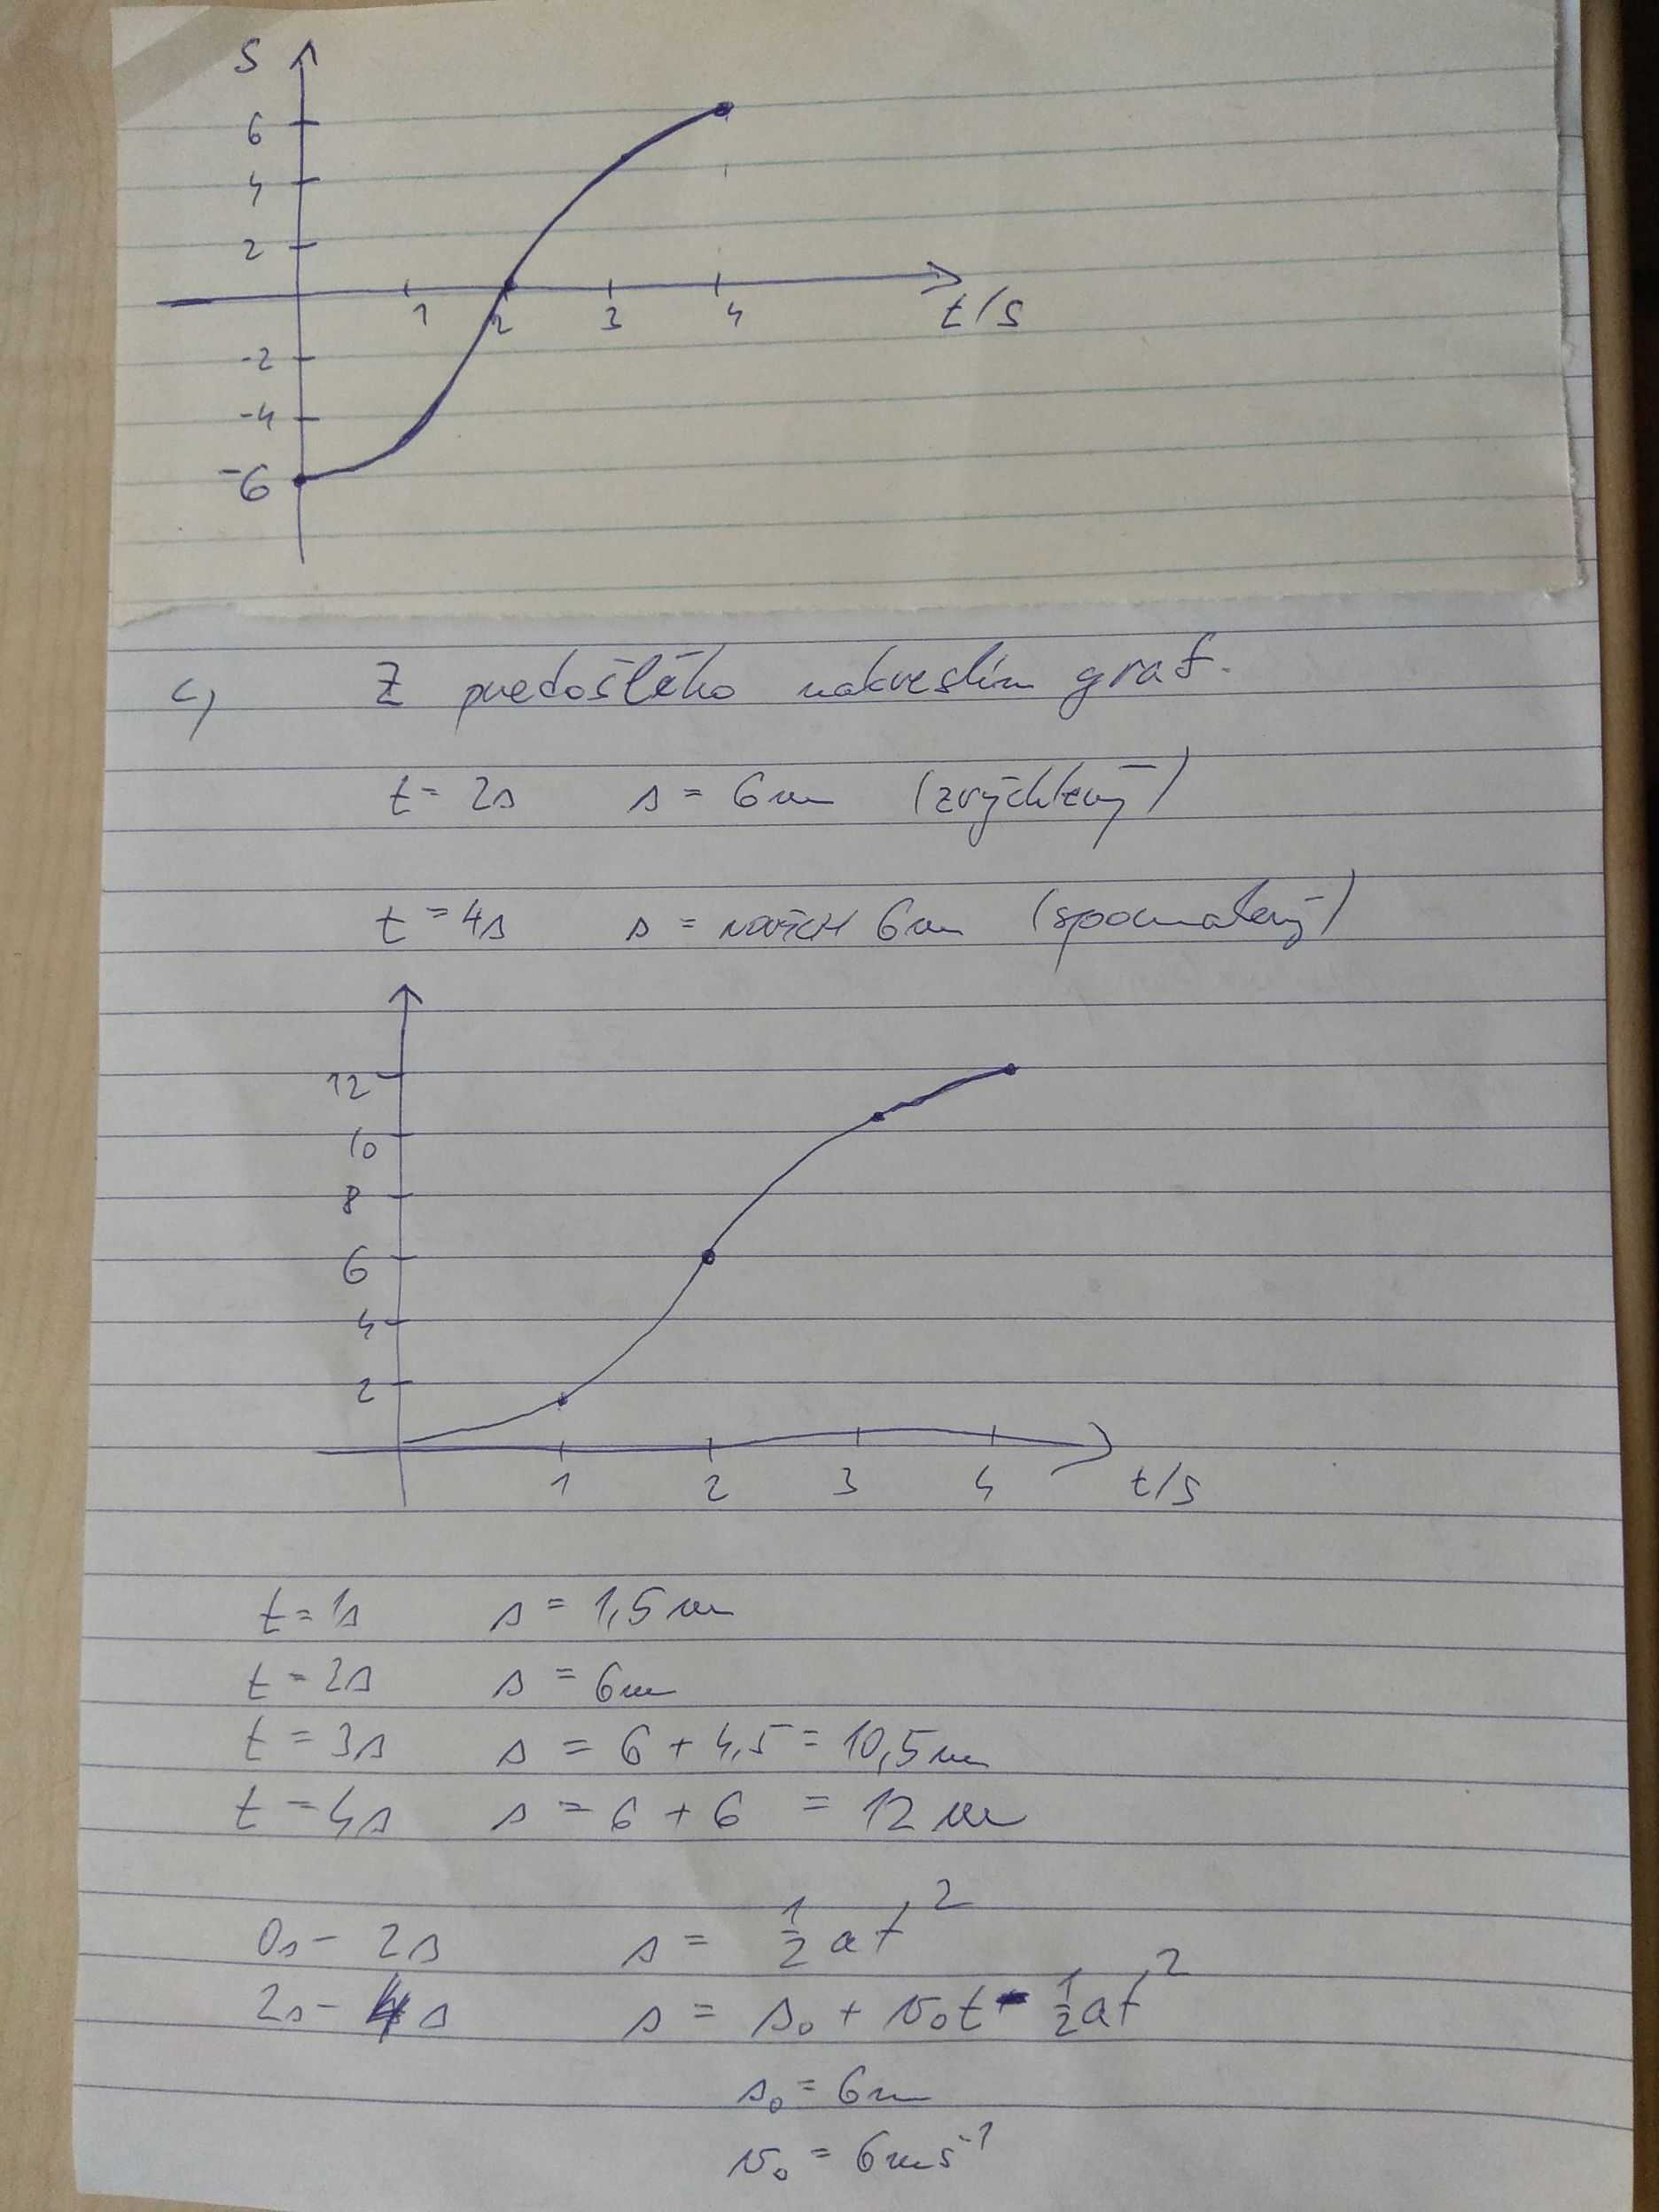 S
6
4
2
1 2 3 4 t/s
-2
-4
-6
c) Z predošlého nakreslím graf.
t = 2s s = 6m (zrýchlený)
t = 4s s = ďalších 6m (spomalený)
12
10
8
6
4
2
1 2 3 4 t/s
t = 1s s = 1,5m
t = 2s s = 6m
t = 3s s = 6 + 4,5 = 10,5m
t = 4s s = 6 + 6 = 12m
0s - 2s s = 1/2 at²
2s - 4s s = s₀ + v₀t - 1/2 at²
s₀ = 6m
v₀ = 6ms⁻¹